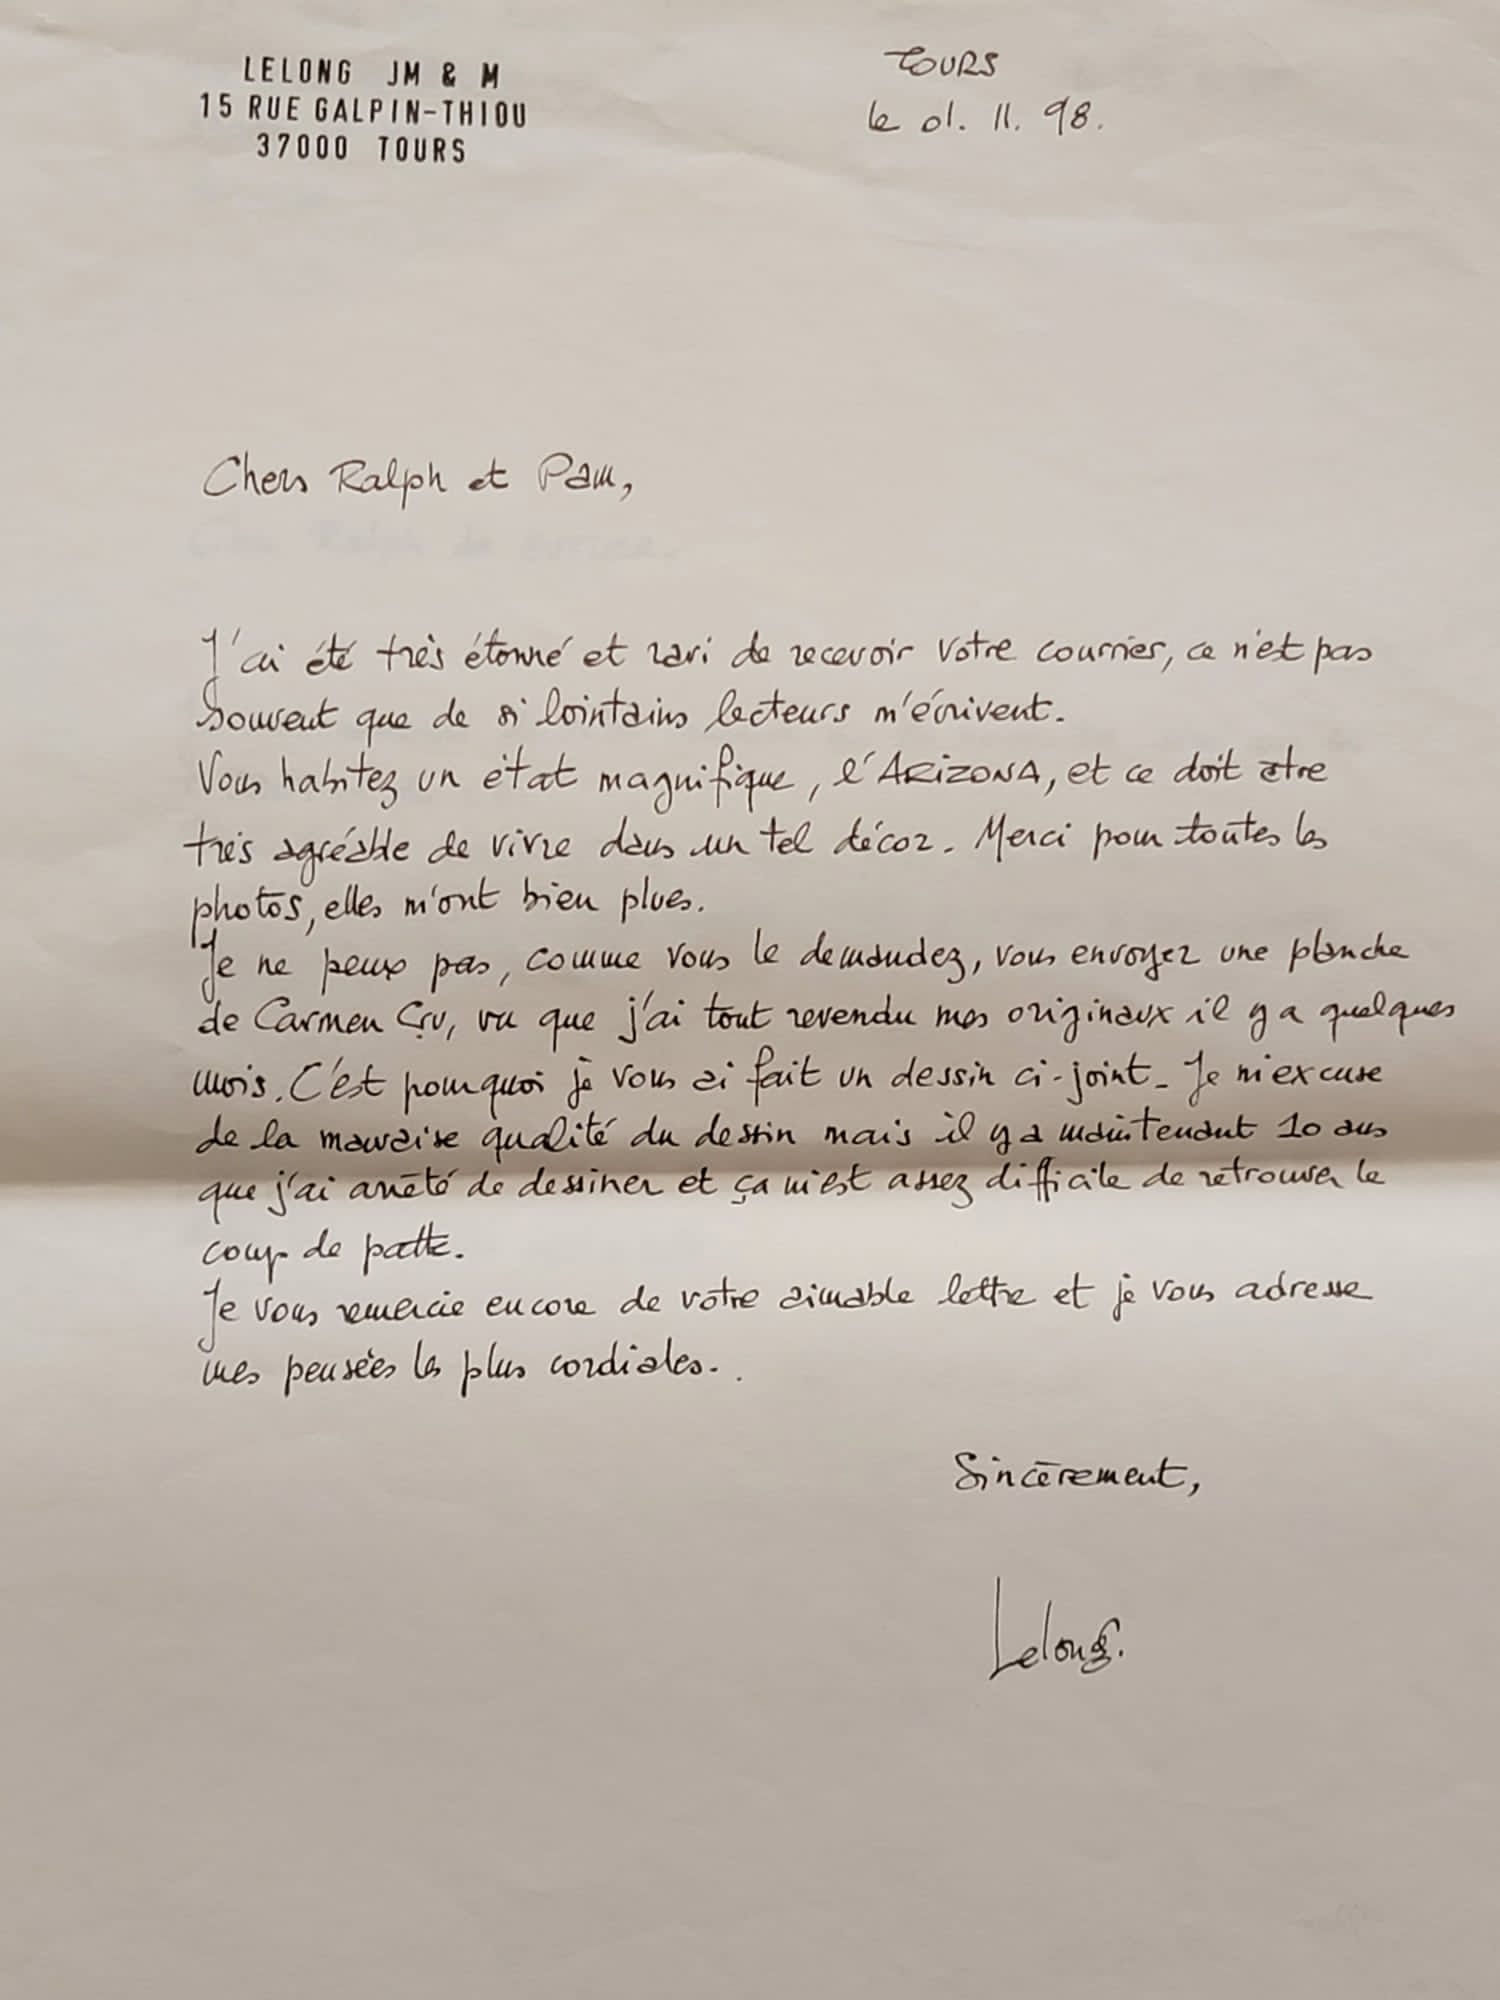 LELONG JM & M
15 RUE GALPIN-THIOU
37000 TOURS
TOURS
le 01. 11. 98.
Chers Ralph et Pam,
J'ai été très étonné et ravi de recevoir votre courrier, ce n'est pas
souvent que de si lointains lecteurs m'écrivent.
Vous habitez un état magnifique, l'ARIZONA, et ce doit etre
très agréable de vivre dans un tel décor. Merci pour toutes les
photos, elles m'ont bien plues.
Je ne peux pas, comme vous le demandez, vous envoyez une planche
de Carmen Cru, vu que j'ai tout revendu mes originaux il y a quelques
mois. C'est pourquoi je vous ai fait un dessin ci-joint. Je m'excuse
de la mauvaise qualité du dessin mais il y a maintenant 10 ans
que j'ai arrêté de dessiner et ça m'est assez difficile de retrouver le
coup de patte.
Je vous remercie encore de votre aimable lettre et je vous adresse
mes pensées les plus cordiales..
Sincèrement,
Lelong.